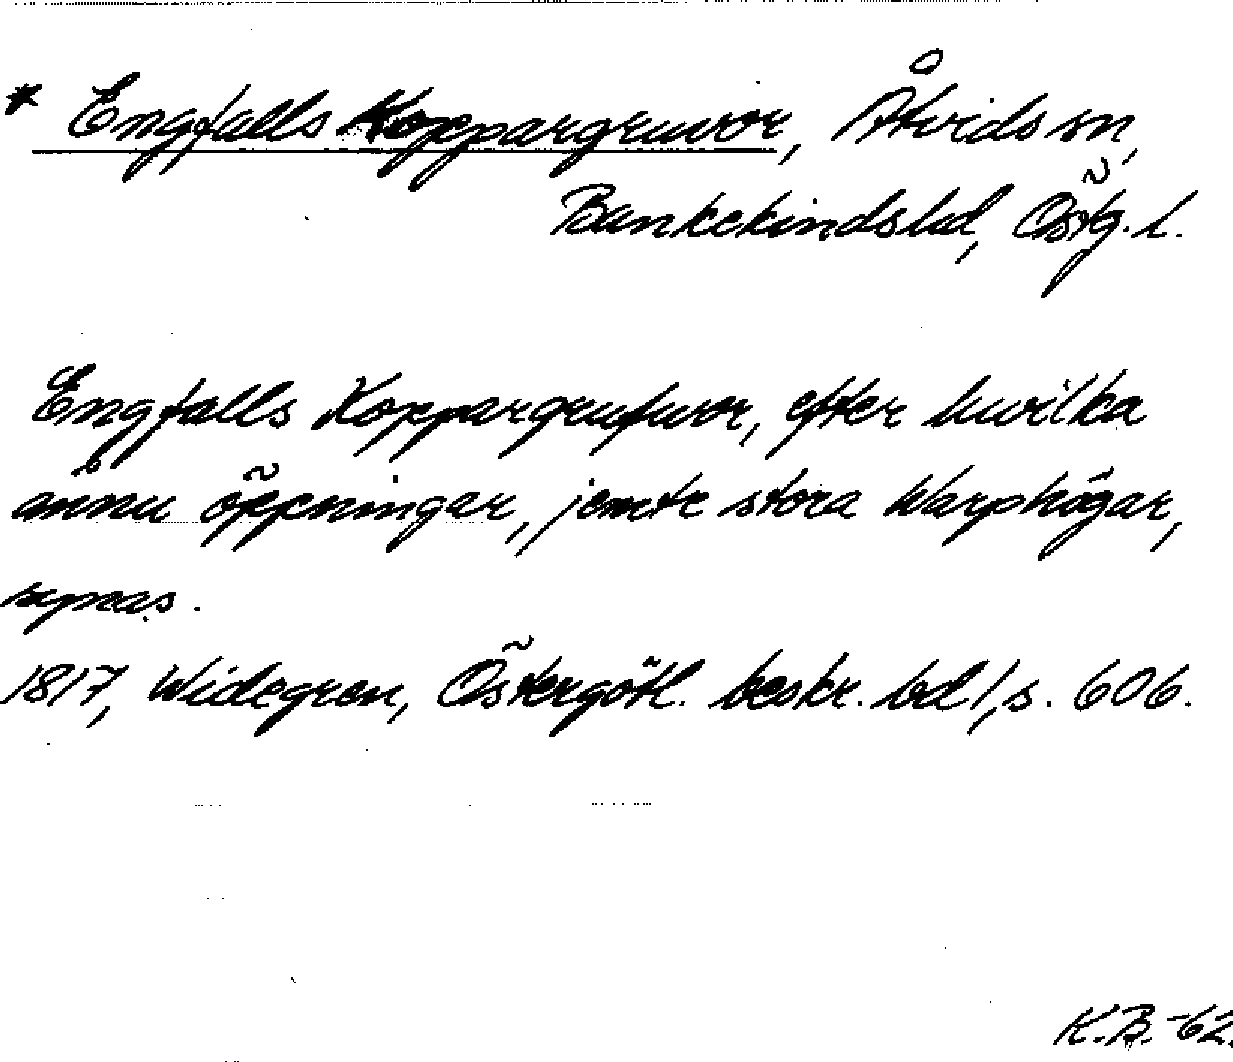 * Engfalls Koppargruvor, Åtvids sn,
Bankekinds hd, Östg. l.
Engfalls Koppargrufwor, efter hwilka
ännu öppningar, jemte stora Warphögar,
synas.
1817, Widegren, Östergötl. beskr. bd 1, s. 606.
K.B.-62.